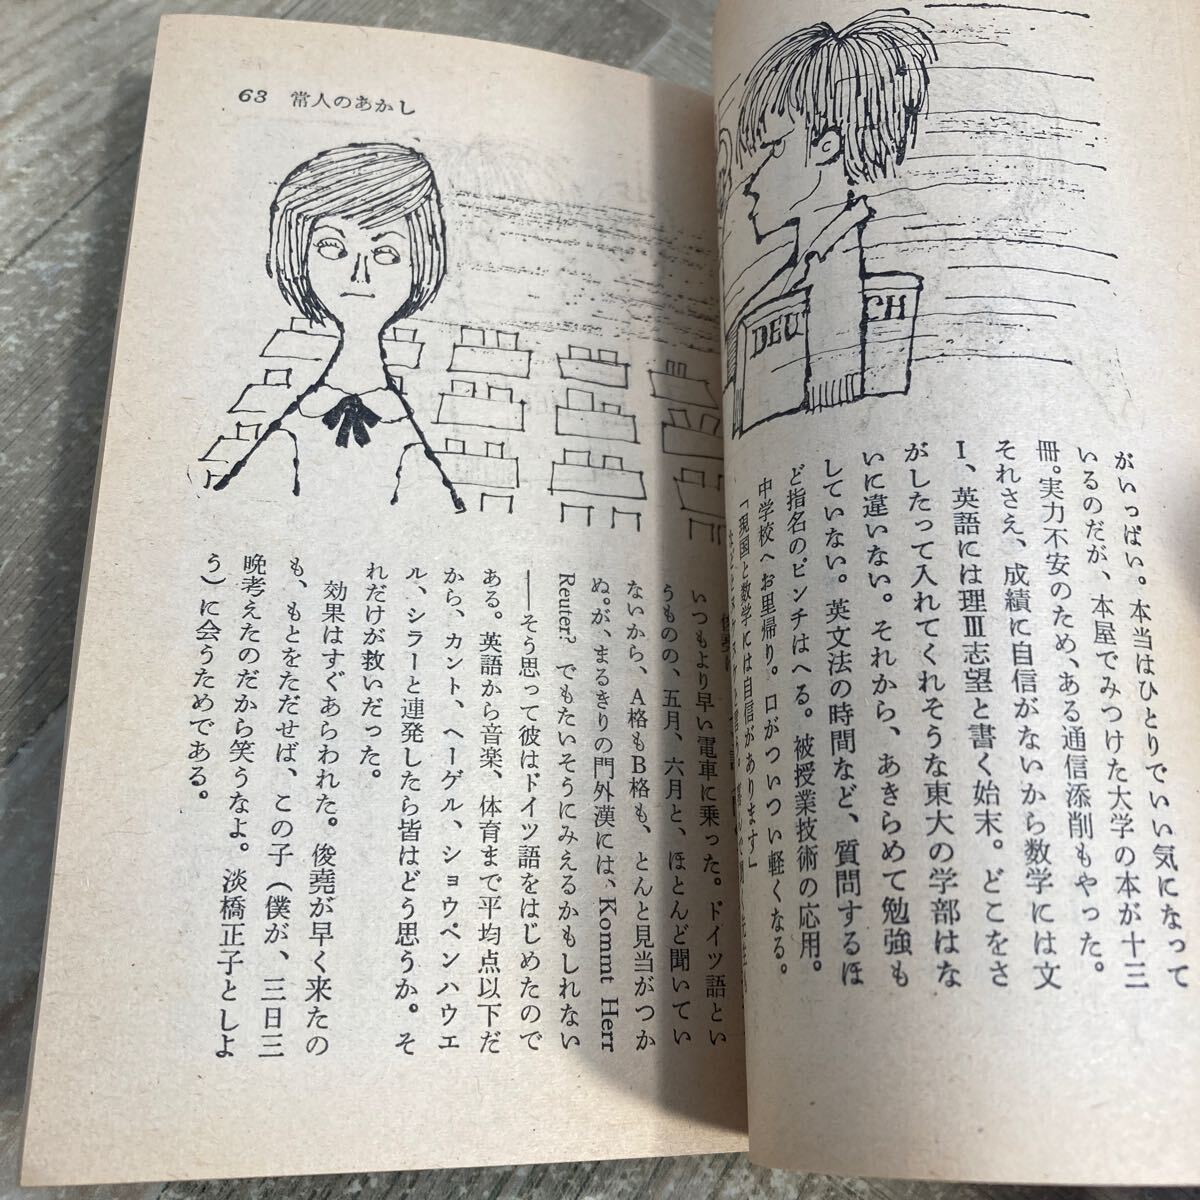 DEU CH
がいっぱい。本当はひとりでいい気になって
いるのだが、本屋でみつけた大学の本が十三
冊。実力不安のため、ある通信添削もやった。
それさえ、成績に自信がないから数学には文
Ⅰ、英語には理Ⅲ志望と書く始末。どこをさ
がしたって入れてくれそうな東大の学部はな
いに違いない。それから、あきらめて勉強も
していない。英文法の時間など、質問するほ
ど指名のピンチはへる。被授業技術の応用。
中学校へお里帰り。口がついつい軽くなる。
「現国と数学には自信があります」
63 常人のあかし
いつもより早い電車に乗った。ドイツ語とい
うものの、五月、六月と、ほとんど聞いてい
ないから、A格もB格も、とんと見当がつか
ぬ。が、まるきりの門外漢には、Kommt Herr
Reuter? でもたいそうにみえるかもしれない
――そう思って彼はドイツ語をはじめたので
ある。英語から音楽、体育まで平均点以下だ
から、カント、ヘーゲル、ショウペンハウエ
ル、シラーと連発したら皆はどう思うか。そ
れだけが救いだった。
効果はすぐあらわれた。俊堯が早く来たの
も、もとをただせば、この子（僕が、三日三
晩考えたのだから笑うなよ。淡橋正子としよ
う）に会うためである。